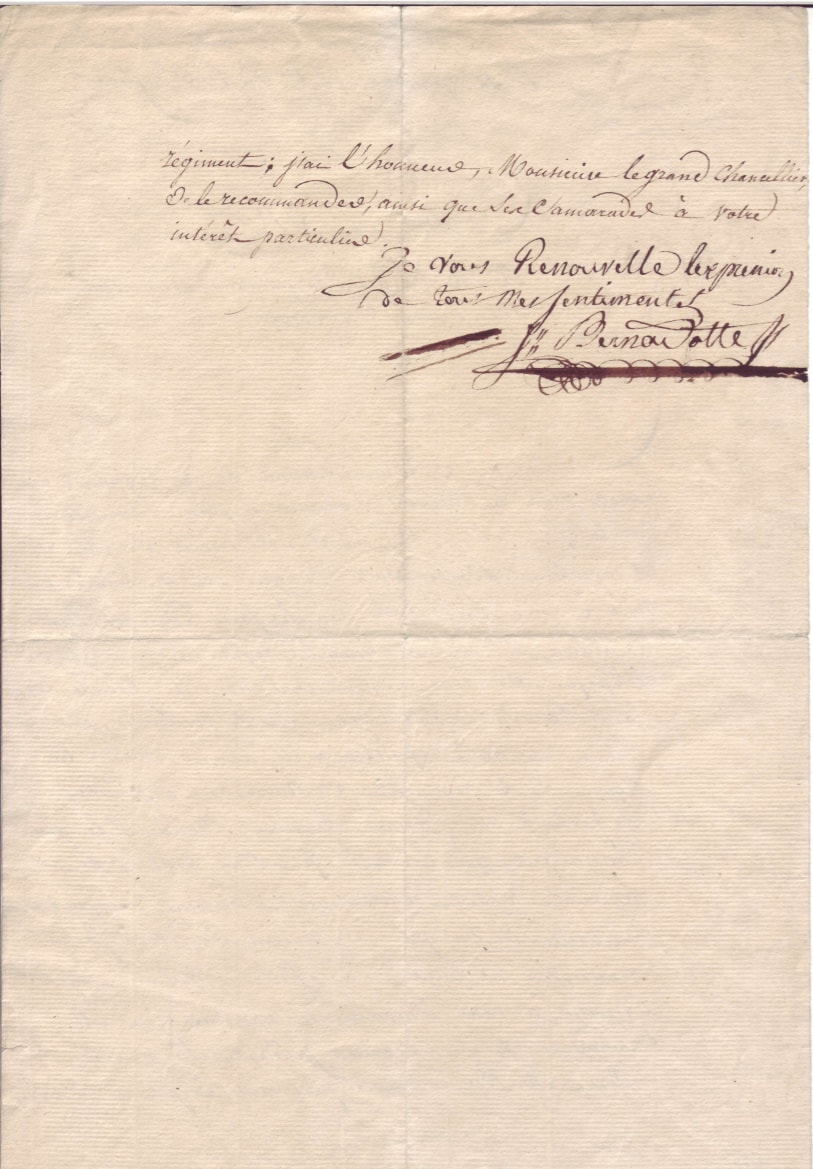 régiment; j'ai l'honneur, Monsieur le grand Chancellier,
de le recommander, ainsi que ses Camarades à votre
intérêt particulier.
Je vous Renouvelle lexpression
de tous mes sentiments
Bernadotte